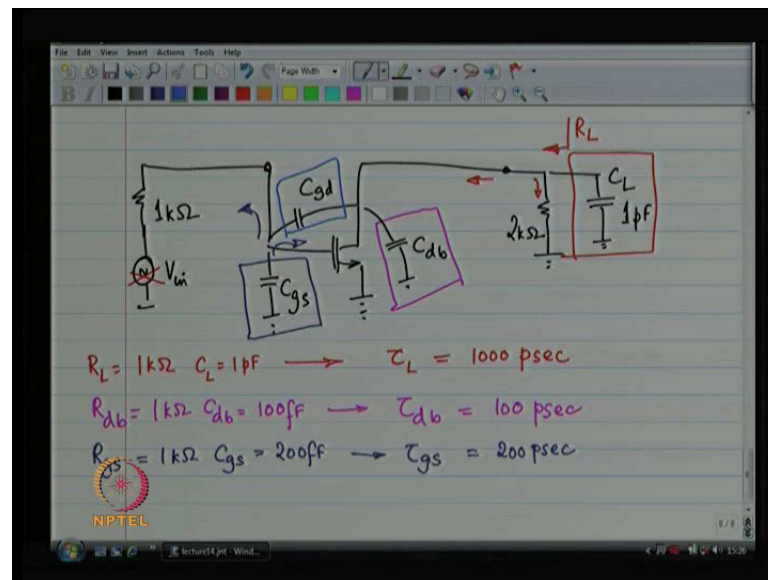 File Edit View Insert Actions Tools Help
Page Width
B I
R_L
C_gd
C_L
1kΩ
1pF
2kΩ
C_db
V_in
C_gs
R_L = 1kΩ C_L = 1pF ⟶ τ_L = 1000 psec
R_db = 1kΩ C_db = 100fF ⟶ τ_db = 100 psec
R_gs = 1kΩ C_gs = 200fF ⟶ τ_gs = 200 psec
NPTEL
8/8
lecture14.jnt - Wind...
15:26